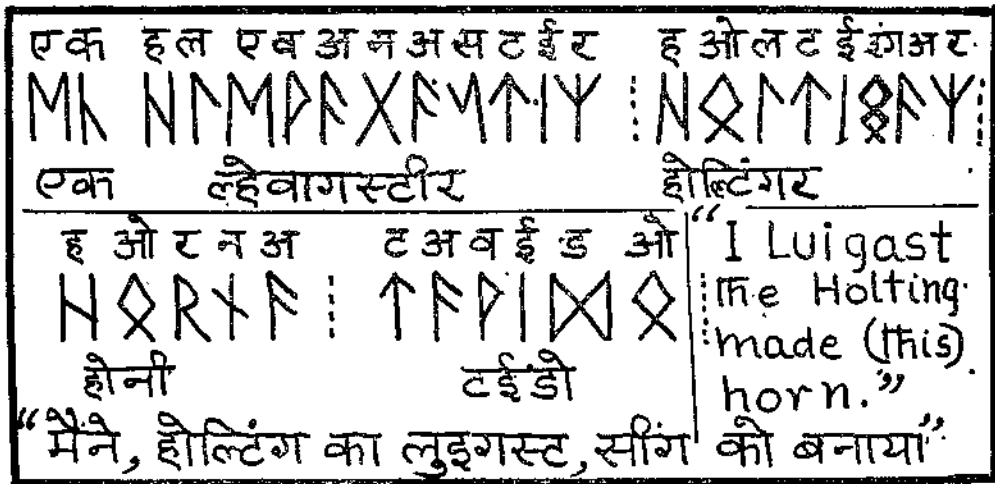 एक हल एव अ न अ स ट ई र ह ओ ल ट ई इंग अ र
ᛖᚳ ᚺᛚᛖᚹᚨᚷᚨᛋᛏᛁᛉ ⁝ ᚺᛟᛚᛏᛁᛜᚨᛉ ⁝
एक ल्हेवागस्टीर होल्टिंगर
ह ओ र न अ ट अ व ई ड ओ
ᚺᛟᚱᚾᚨ ⁝ ᛏᚨᚹᛁᛞᛟ ⁝
होर्नी टईडो
“I Luigast
The Holting
made (this)
horn.”
“मैंने, होल्टिंग का लुइगस्ट, सींग को बनाया”